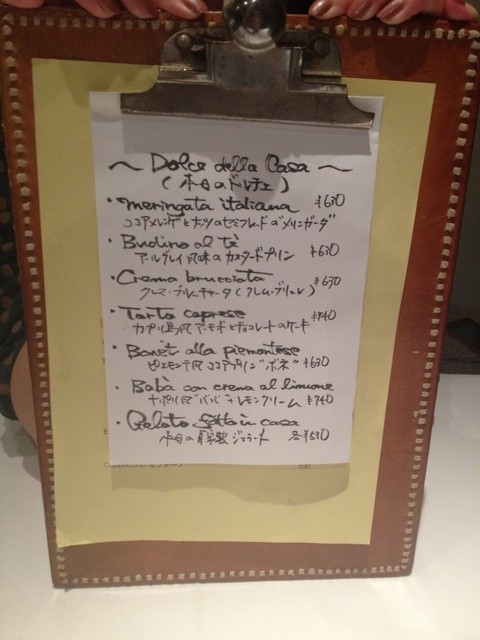 ～ Dolce della Casa ～
(本日のドルチェ)
・meringata italiana ¥630
ココアメレンゲとナッツのセミフレッド"メリンガータ"
・Budino al tè
アールグレイ風味のカスタードプリン ¥630
・Crema brucciata ¥630
クレマ・ブルチャータ(クレム・ブリュレ)
・Tarta caprese ¥840
カプリ島風アーモンドとチョコレートのケーキ
・Bonèt alla piemontese
ピエモンテ風ココアプリン"ボネ" ¥630
・Babà con crema al limone
ナポリ風"ババ" レモンクリーム ¥740
・Gelato fatto in casa
本日の自家製ジェラート 各¥530